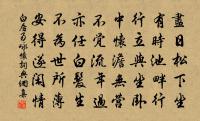 盡日松下坐
有時池畔行
行立與坐臥
中懷澹無營
不覺流年過
亦任白髮生
不為世所薄
安得遂閑情
白居易詠懷詞典網集